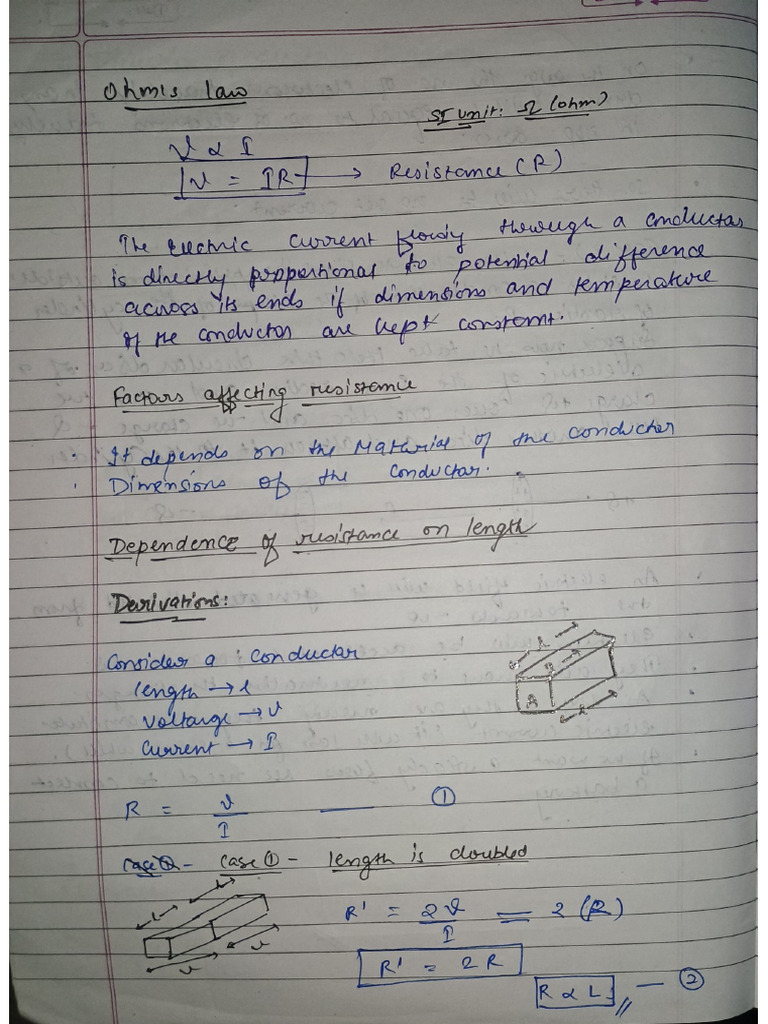 Ohm's law
SI unit: Ω (ohm)
V ∝ I
V = IR → Resistance (R)
The Electric current flowing through a conductor
is directly proportional to potential difference
across its ends if dimensions and temperature
of the conductor are kept constant.
Factors affecting resistance
· It depends on the Material of the conductor
· Dimensions of the conductor.
Dependence of resistance on length
Derivations:
Consider a conductor
length → l
voltage → V
Current → I
R = V/I — ①
case ① - length is doubled
R' = 2V/I = 2 (R)
R' = 2R
R ∝ L — ②